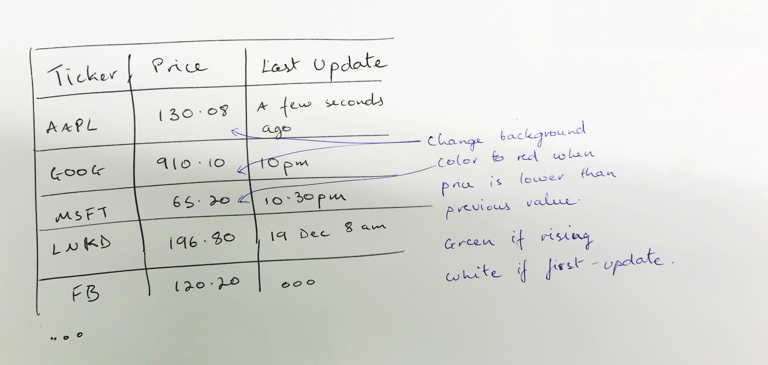 Ticker Price Last Update
AAPL 130.08 A few seconds
ago
GOOG 910.10 10pm
MSFT 65.20 10.30pm
LNKD 196.80 19 Dec 8 am
FB 120.20 ooo
...
Change background
color to red when
price is lower than
previous value.
Green if rising
White if first-update.